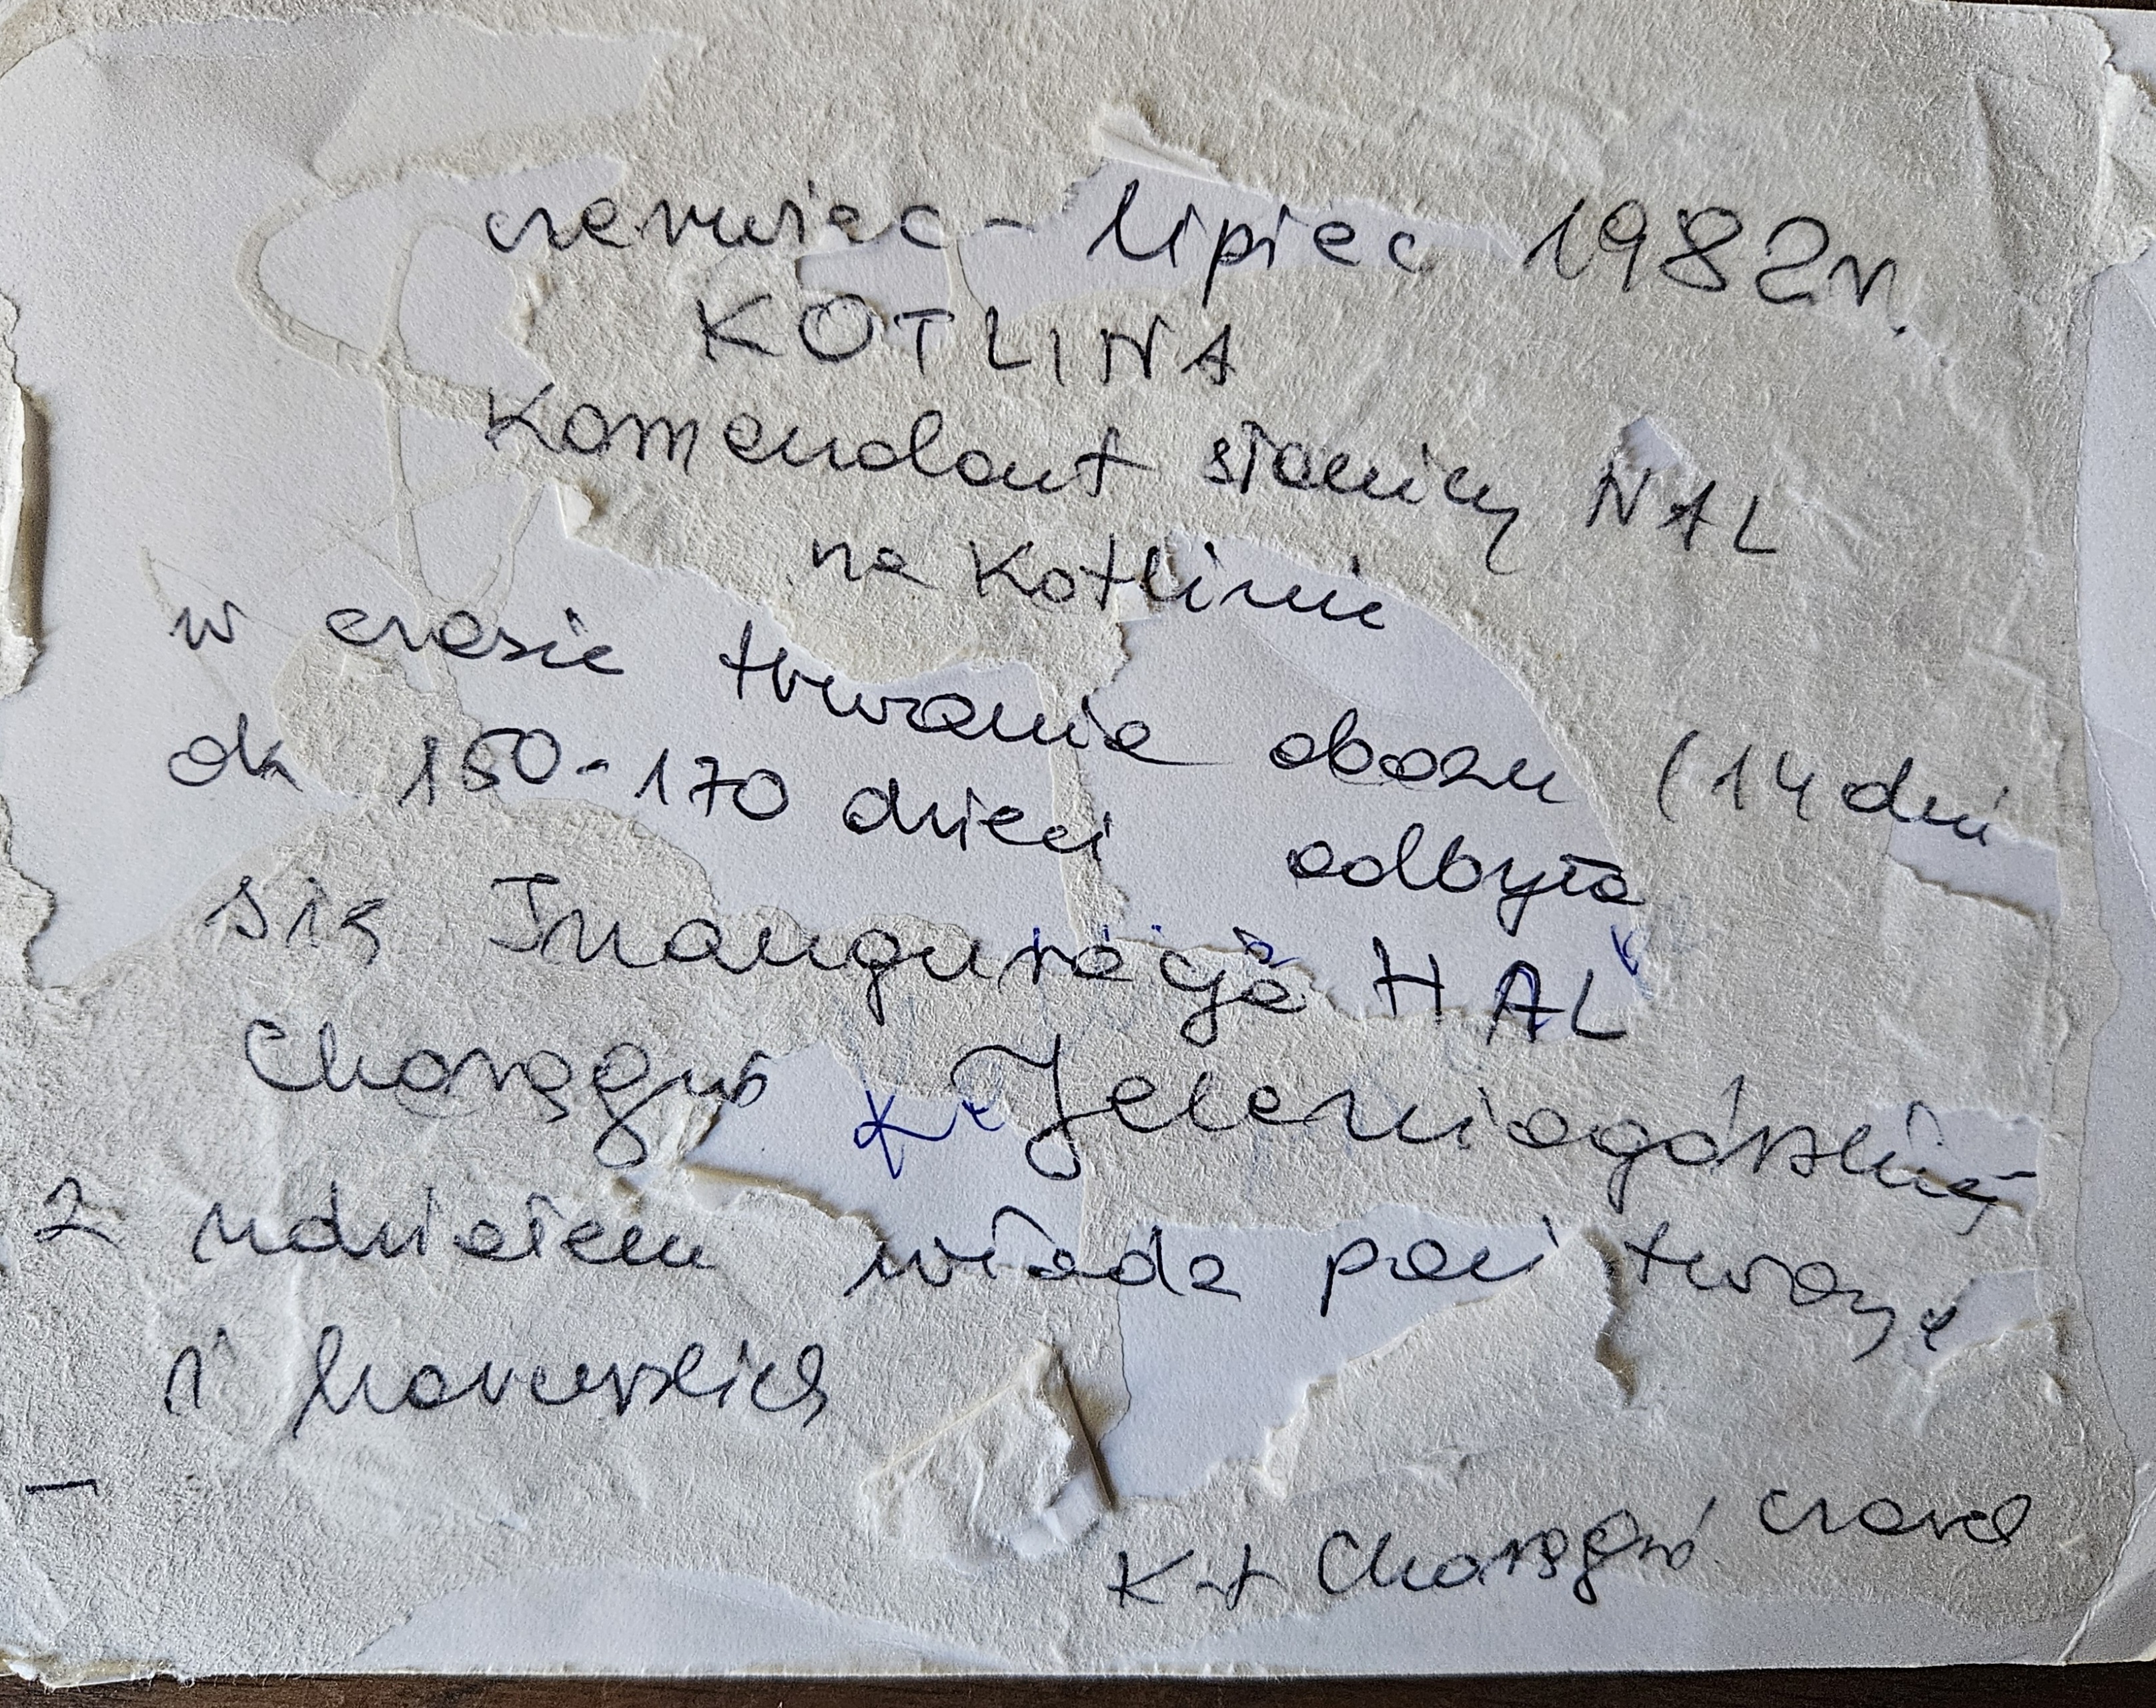 czerwiec - lipiec 1982r.
KOTLINA
Komendant stanicy NAL
na Kotlinie
w czasie trwania obozu (14 dni
ok 150-170 dzieci odbyła
się Inauguracja HAL
Chorągwi Jeleniogórskiej
z udziałem władz państwowych
i harcerskich
-
K-t Chorągwi